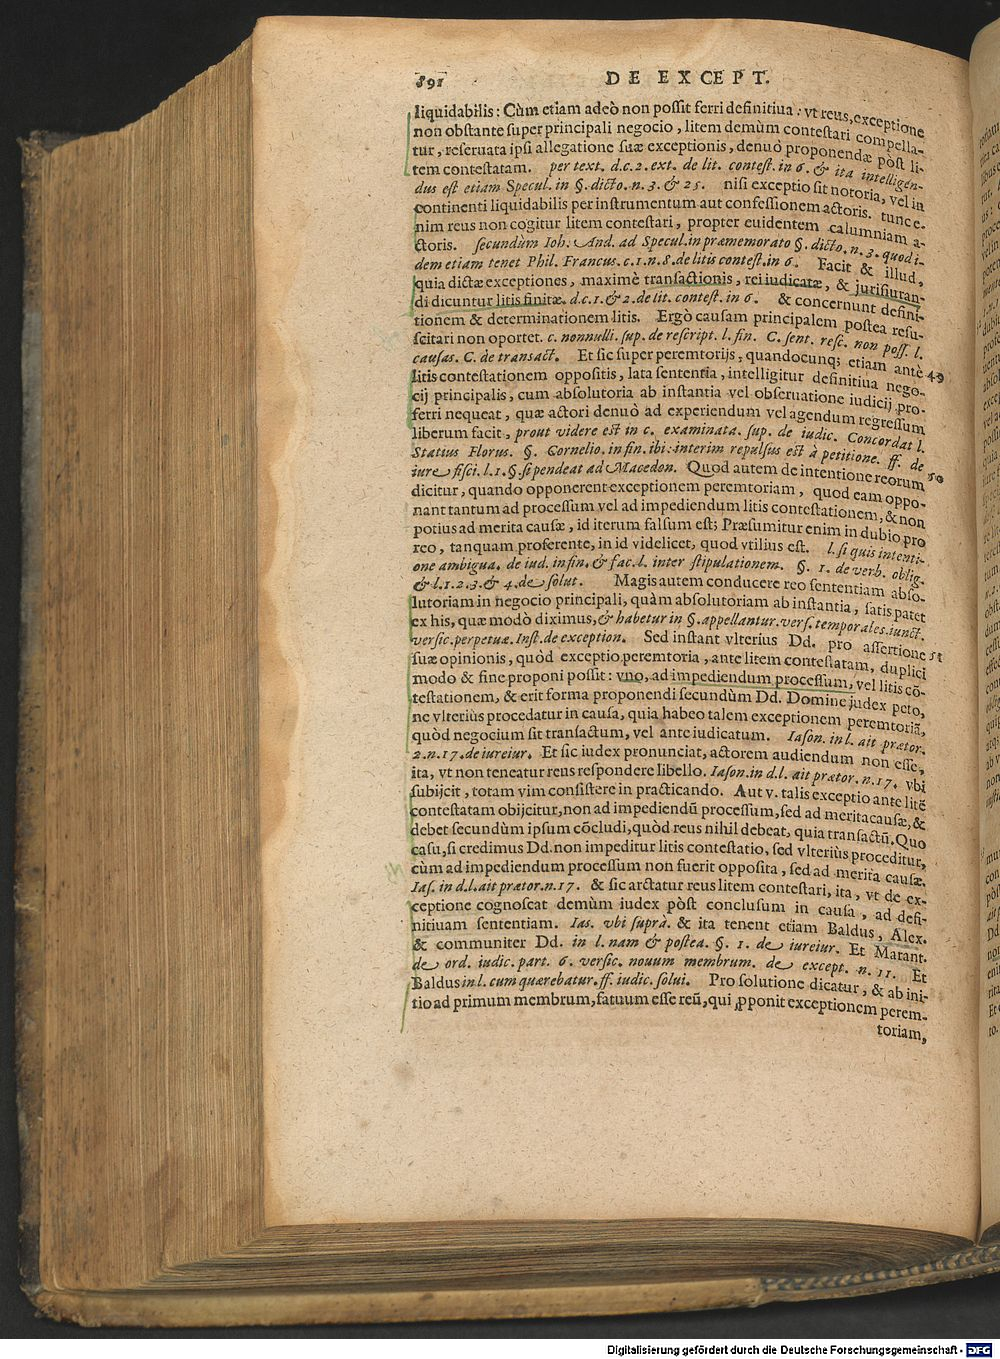 891 DE EXCEPT.
liquidabilis: Cùm etiam adeò non possit ferri definitiua: vt reus, exceptione
non obstante super principali negocio, litem demùm contestari compella-
tur, reseruata ipsi allegatione suæ exceptionis, denuò proponendæ pòst li-
tem contestatam. per text. d.c. 2. ext. de lit. contest. in 6. & ita intelligen-
dus est etiam Specul. in §. dicto. n. 3. & 25. nisi exceptio sit notoria, vel in
continenti liquidabilis per instrumentum aut confessionem actoris. tunc e-
nim reus non cogitur litem contestari, propter euidentem calumniam a-
ctoris. secundùm Ioh. And. ad Specul. in præmemorato §. dicto. n. 3. quod i-
dem etiam tenet Phil. Francus. c. 1. n. 8. de litis contest. in 6. Facit & illud,
quia dictæ exceptiones, maximè transactionis, rei iudicatæ, & iurisiuran-
di dicuntur litis finitæ. d.c. 1. & 2. de lit. contest. in 6. & concernunt defini-
tionem & determinationem litis. Ergò causam principalem postea resu-
scitari non oportet. c. nonnulli. sup. de rescript. l. fin. C. sent. resc. non poss. l.
causas. C. de transact. Et sic super peremtorijs, quandocunq; etiam antè 49
litis contestationem oppositis, lata sententia, intelligitur definitiua nego-
cij principalis, cum absolutoria ab instantia vel obseruatione iudicij pro-
ferri nequeat, quæ actori denuò ad experiendum vel agendum regressum
liberum facit, prout videre est in c. examinata. sup. de iudic. Concordat l.
Statius Florus. §. Cornelio. in fin. ibi: interim repulsus est à petitione. ff. de
iure fisci. l. 1. §. si pendeat ad Macedon. Quod autem de intentione reorum 50
dicitur, quando opponerent exceptionem peremtoriam, quod eam oppo-
nant tantum ad processum vel ad impediendum litis contestationem, & non
potius ad merita causæ, id iterum falsum est; Præsumitur enim in dubio pro
reo, tanquam proferente, in id videlicet, quod vtilius est. l. si quis intenti-
one ambigua. de iud. in fin. & fac. l. inter stipulationem. §. 1. de verb. oblig.
& l. 1. 2. 3. & 4. de solut. Magis autem conducere reo sententiam abso-
lutoriam in negocio principali, quàm absolutoriam ab instantia, satis patet
ex his, quæ modò diximus, & habetur in §. appellantur. vers. temporales. iunct.
versic. perpetuæ. Inst. de exception. Sed instant vlterius Dd. pro assertione 51
suæ opinionis, quòd exceptio peremtoria, ante litem contestatam, duplici
modo & fine proponi possit: vno, ad impediendum processum, vel litis cō-
testationem, & erit forma proponendi secundùm Dd. Domine judex peto,
ne vlteriùs procedatur in causa, quia habeo talem exceptionem peremtoriā,
quòd negocium sit transactum, vel ante iudicatum. Iason. in l. ait prætor.
2. n. 17. de iureiur. Et sic iudex pronunciat, actorem audiendum non esse,
ita, vt non teneatur reus respondere libello. Iason. in d. l. ait prætor. n. 17. vbi
subijcit, totam vim consistere in practicando. Aut v. talis exceptio ante litē
contestatam obijcitur, non ad impediendū processum, sed ad merita causæ, &
debet secundùm ipsum cōcludi, quòd reus nihil debeat, quia transactū. Quo
casu, si credimus Dd. non impeditur litis contestatio, sed vlteriùs proceditur,
cùm ad impediendum processum non fuerit opposita, sed ad merita causæ.
Ias. in d. l. ait prætor. n. 17. & sic arctatur reus litem contestari, ita, vt de ex-
ceptione cognoscat demùm iudex pòst conclusum in causa, ad defi-
nitiuam sententiam. Ias. vbi suprà. & ita tenent etiam Baldus, Alex.
& communiter Dd. in l. nam & postea. §. 1. de iureiur. Et Marant.
de ord. iudic. part. 6. versic. nouum membrum. de except. n. 11. Et
Baldus in l. cum quærebatur. ff. iudic. solui. Pro solutione dicatur, & ab ini-
tio ad primum membrum, fatuum esse reū, qui ꝓponit exceptionem perem-
toriam,
Digitalisierung gefördert durch die Deutsche Forschungsgemeinschaft - DFG